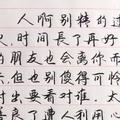 人啊别犊的过
时间長了再好
的朋友也会离你而
但也别傻得可怜
对出要看对谁.太
善良了遭人利用心